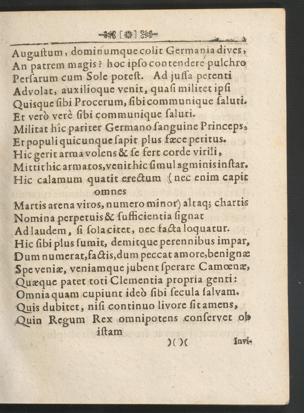 [ ]
Augustum, dominumque colit Germania dives,
An patrem magis? hoc ipso contendere pulchro
Persarum cum Sole potest. Ad jussa petenti
Advolat, auxilioque venit, quasi militet ipsi
Quisque sibi Procerum, sibi communique saluti.
Et verò verè sibi communique saluti.
Militat hic pariter Germano sanguine Princeps,
Et populi quicunque sapit plus fæce peritus.
Hic gerit arma volens & se fert corde virili,
Mittit hic armatos, venit hic simul agminis instar.
Hic calamum quatit erectum (nec enim capit
omnes
Martis arena viros, numero minor) altaq; chartis
Nomina perpetuis & sufficientia signat
Ad laudem, si sola citet, nec facta loquatur.
Hic sibi plus sumit, demitque perennibus impar,
Dum numerat, factis, dum peccat amore, benignæ
Spe veniæ, veniamque jubent sperare Camœnæ,
Quæque patet toti Clementia propria genti:
Omnia quam cupiunt ideò sibi secula salvam.
Quis dubitet, nisi continuo livore sit amens,
Quin Regum Rex omnipotens conservet ob
istam
)( )(
Invi-